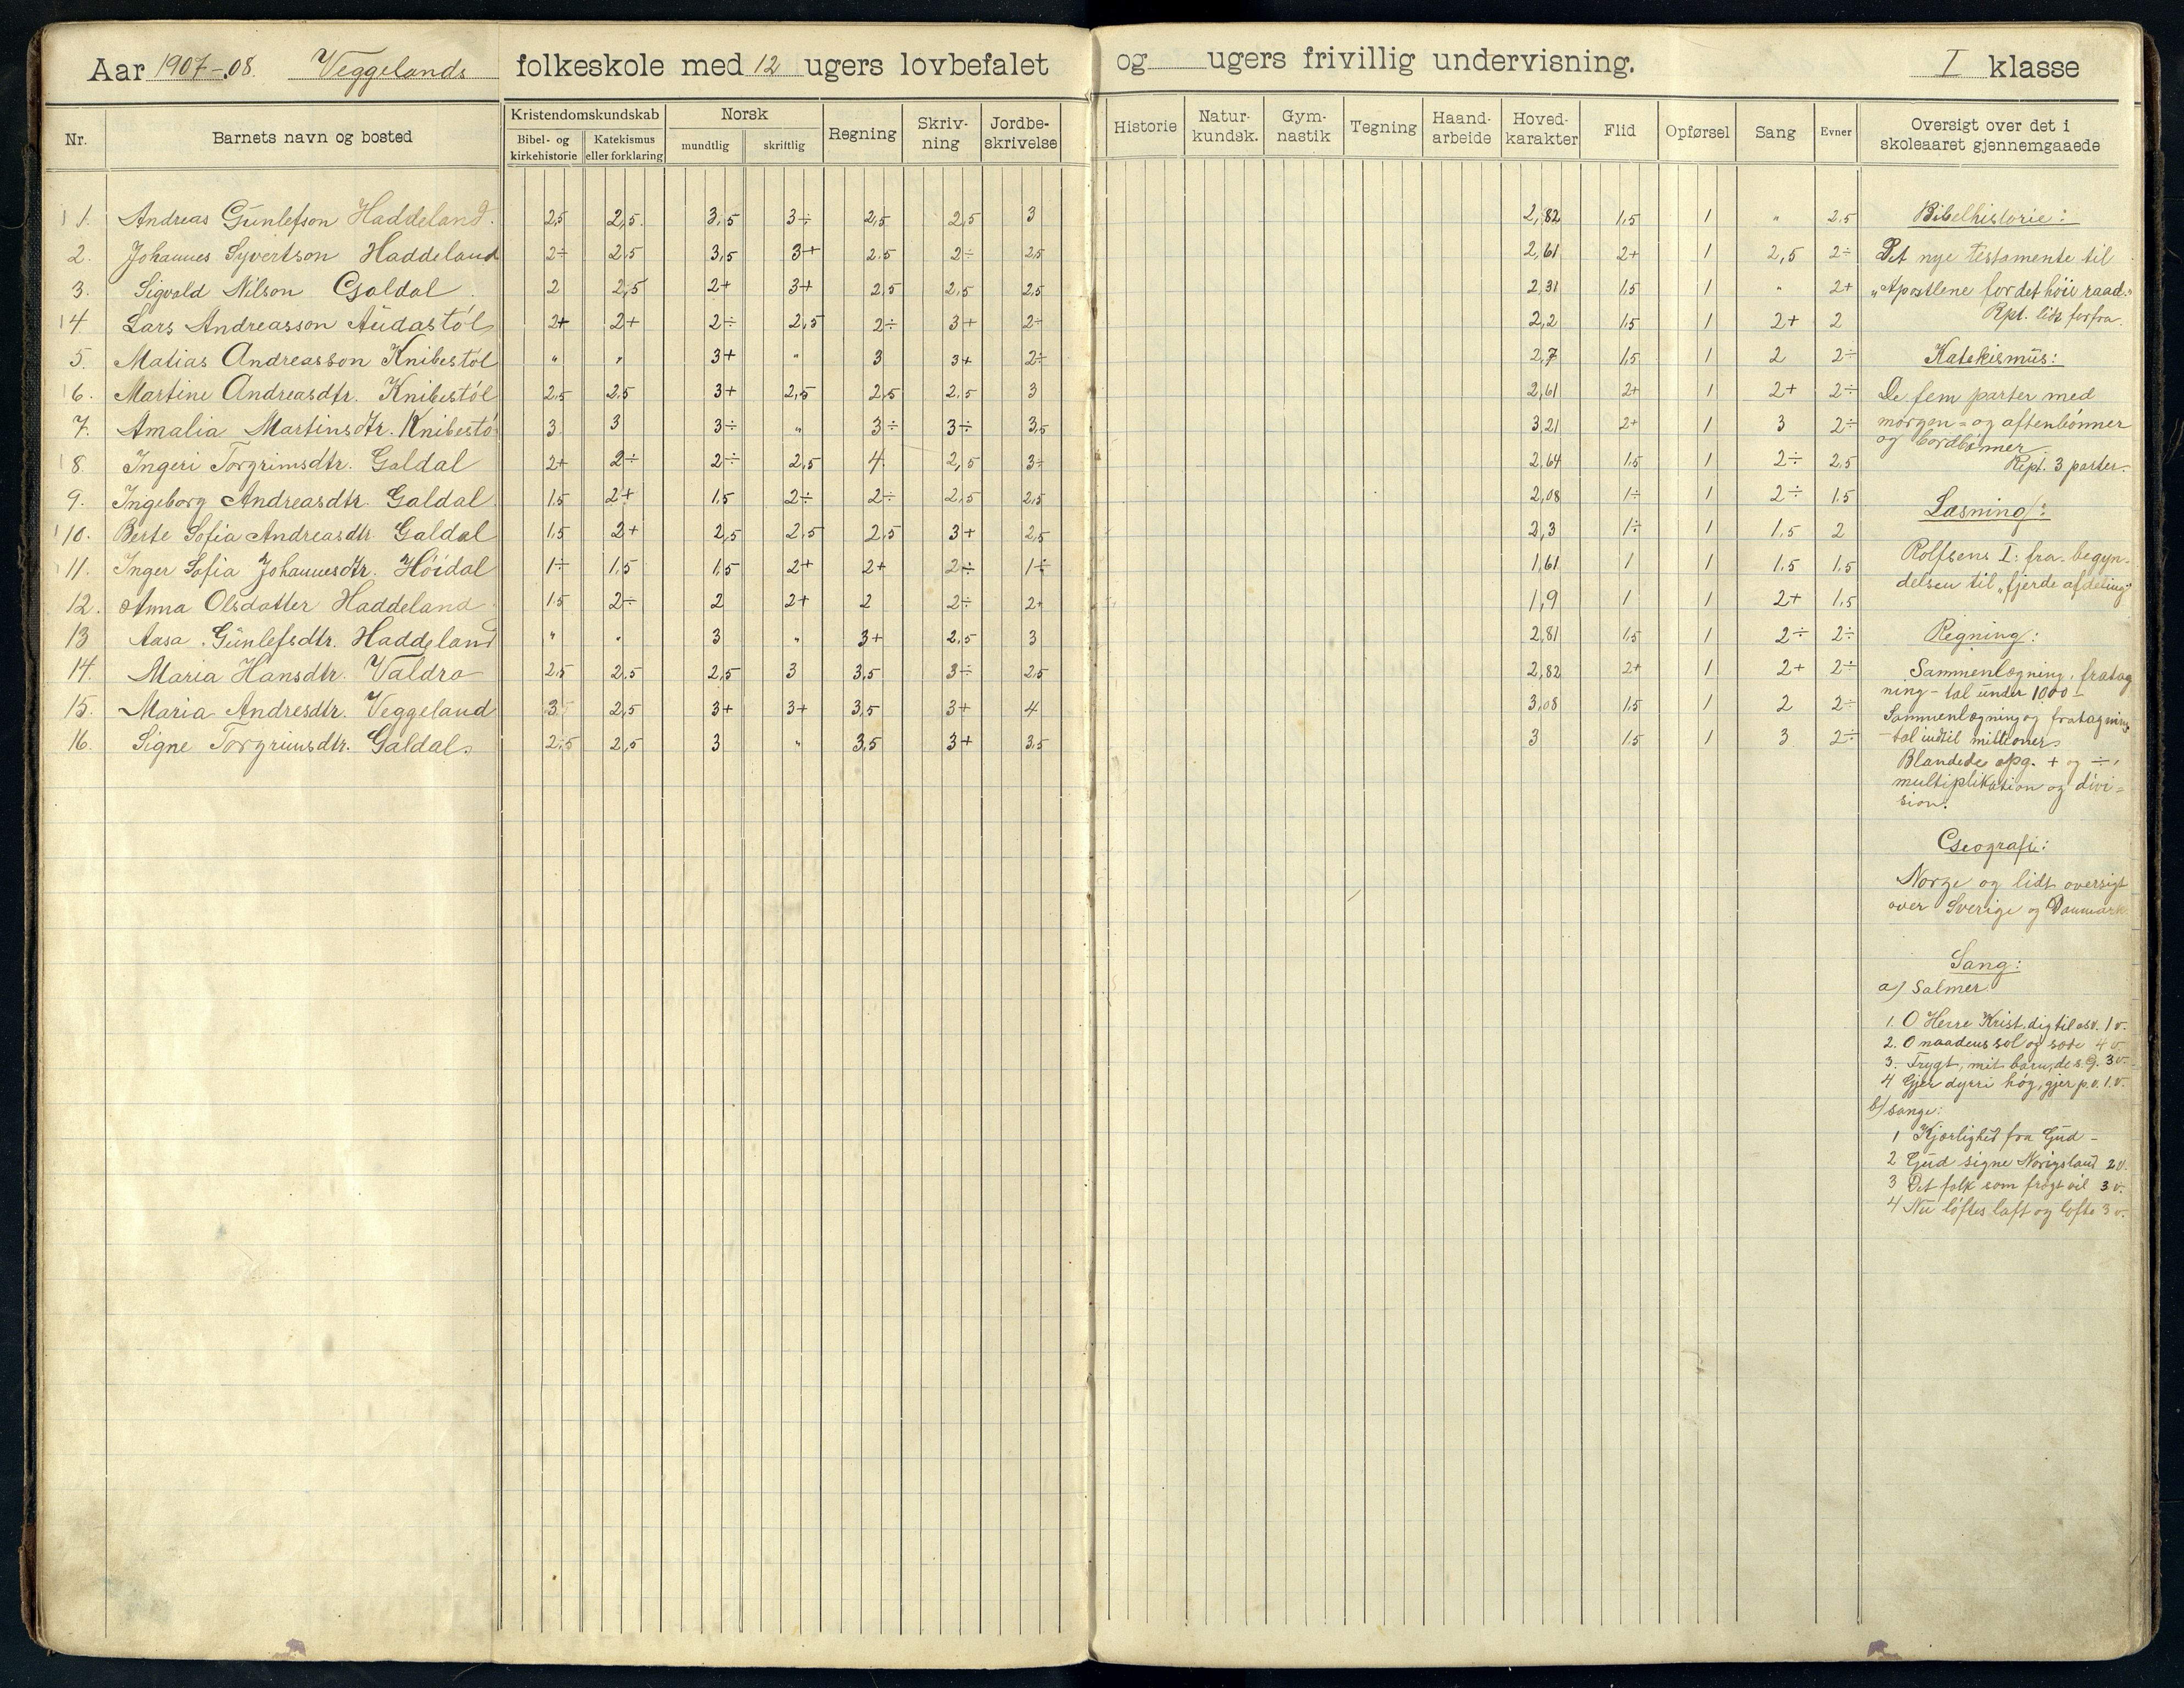 Aar 1907-08. Veggelands folkeskole med 12 ugers lovbefalet og ugers frivillig undervisning. I klasse
Nr. Barnets navn og bosted Kristendomskundskab Bibel- og kirkehistorie Katekismus eller forklaring Norsk mundtlig skriftlig Regning Skriv-ning Jordbe-skrivelse Historie Natur-kundsk. Gym-nastik Tegning Haand-arbeide Hoved-karakter Flid Opførsel Sang Evner Oversigt over det i skoleaaret gjennemgaaede
1. Andreas Gunlefson Haddeland. 2,5 2,5. 3,5 3÷ 2,5 2,5 3 2,82 1,5 1 " 2,5
2. Johannes Syvertson Haddeland 2÷ 2,5 3,5 3+ 2,5 2÷ 2,5 2,61 2+ 1 2,5 2÷
3. Sigvald Nilson Galdal 2 2,5 2+ 3+ 2,5 2,5 2,5 2,31 1,5 1 " 2+
4. Lars Andreasson Audastøl 2+ 2+ 2÷ 2,5 2÷ 3+ 2÷ 2,2 1,5 1 2+ 2
5. Matias Andreasson Knibestøl " " 3+ " 3 3+ 2÷ 2,7 1,5 1 2 2÷
6. Martine Andreasdtr. Knibestøl 2,5 2,5 3+ 2,5 2,5 2,5 3 2,61 2+ 1 2+ 2÷
7. Amalia Martinsdtr. Knibestø 3 3 3÷ " 3÷ 3÷ 3,5 3,21 2+ 1 3 2÷
8. Ingeri Torgrimsdtr. Galdal 2+ 2÷ 2÷ 2,5 4 2,5 3÷ 2,64 1,5 1 2÷ 2,5
9. Ingeborg Andreasdtr. Galdal 1,5 2+ 1,5 2÷ 2÷ 2,5 2,5 2,08 1÷ 1 2÷ 1,5
10. Berte Sofia Andreasdtr. Galdal 1,5 2+ 2,5 2,5 2,5 3+ 2,5 2,3 1÷ 1 1,5 2
11. Inger Sofia Johannesdtr. Høidal 1÷ 1,5 1,5 2+ 2+ 2÷ 1÷ 1,61 1 1 1,5 1,5
12. Anna Olsdatter Haddeland 1,5 2÷ 2 2+ 2 2÷ 2+ 1,9 1 1 2+ 1,5
13 Aasa Gunlefsdtr. Haddeland " " 3 " 3+ 2,5 3 2,81 1,5 1 2÷ 2÷
14. Maria Hansdtr. Valdra 2,5 2,5 2,5 3 3,5 3÷ 2,5 2,82 2+ 1 2+ 2÷
15. Maria Andresdtr. Veggeland 3 2,5 3+ 3+ 3,5 3+ 4 3,08 1,5 1 2 2÷
16. Signe Torgrimsdtr. Galdal. 2,5 2,5 3 " 3,5 3+ 3,5 3 1,5 1 3 2÷
Bibelhistorie:
Det nye testamente til
"Apostlene for det høie raad."
Rpt. lidt forfra.
Katekismus:
De fem parter med
morgen= og aftenbønner
og bordbønner.
Rept. 3 parter.
Læsning:
Rolfsens I: fra begyn-
delsen til "fjerde afdeling"
Regning:
Sammenlægning, fratag
ning - tal under 1000 -
Sammenlægning og fratagning
- tal indtil millioner.
Blandede opg. + og ÷,
multiplikation og divi=
sion.
Geografi:
Norge og lidt oversigt
over Sverige og Danmark
Sang:
a) Salmer
1. O Herre Krist, dig til osv. 1 v.
2. O naadens sol og sæde 4 v.
3. Trygt, mit barn, de s. G. 3 v.
4 Gjer dyrri høg, gjer p. v. 1. v.
b) sange:
1 Kjærlighed fra Gud -
2 Gud signe Norigsland 2 v.
3 Det folk som frægt vil 3 v.
4 Nu løftes laft og lofte 3 v.